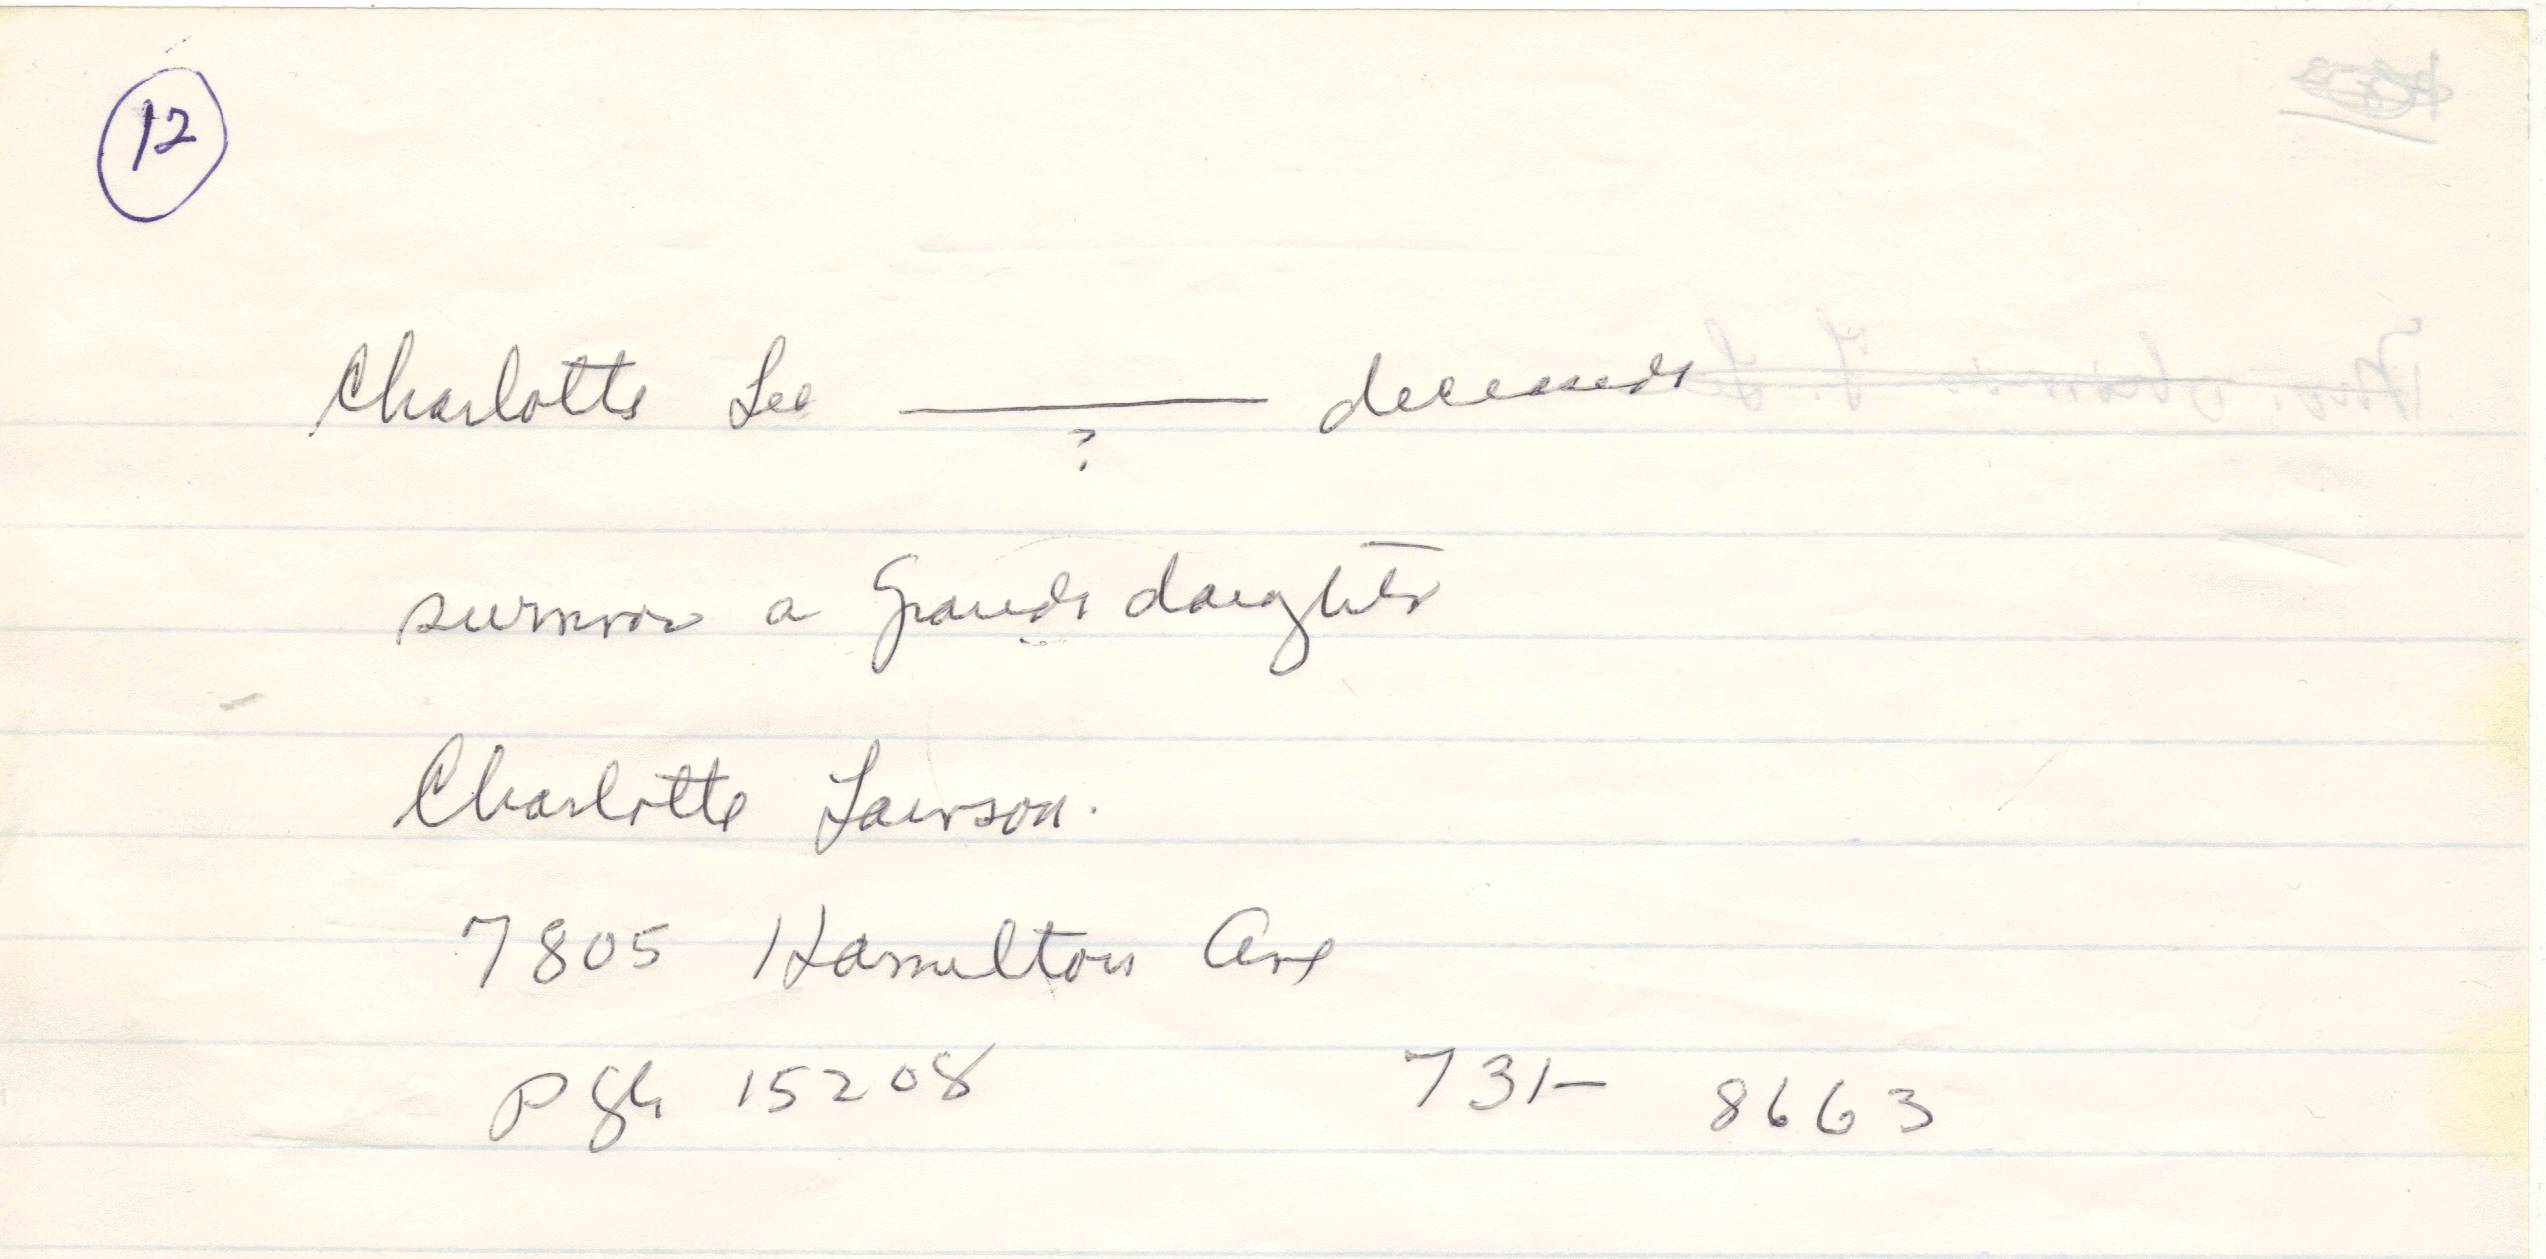 12
Charlotte Lee ———— deceased
?
survivor a Grand daughter
Charlotte Lawson.
7805 Hamilton Ave
Pgh 15208 731- 8663